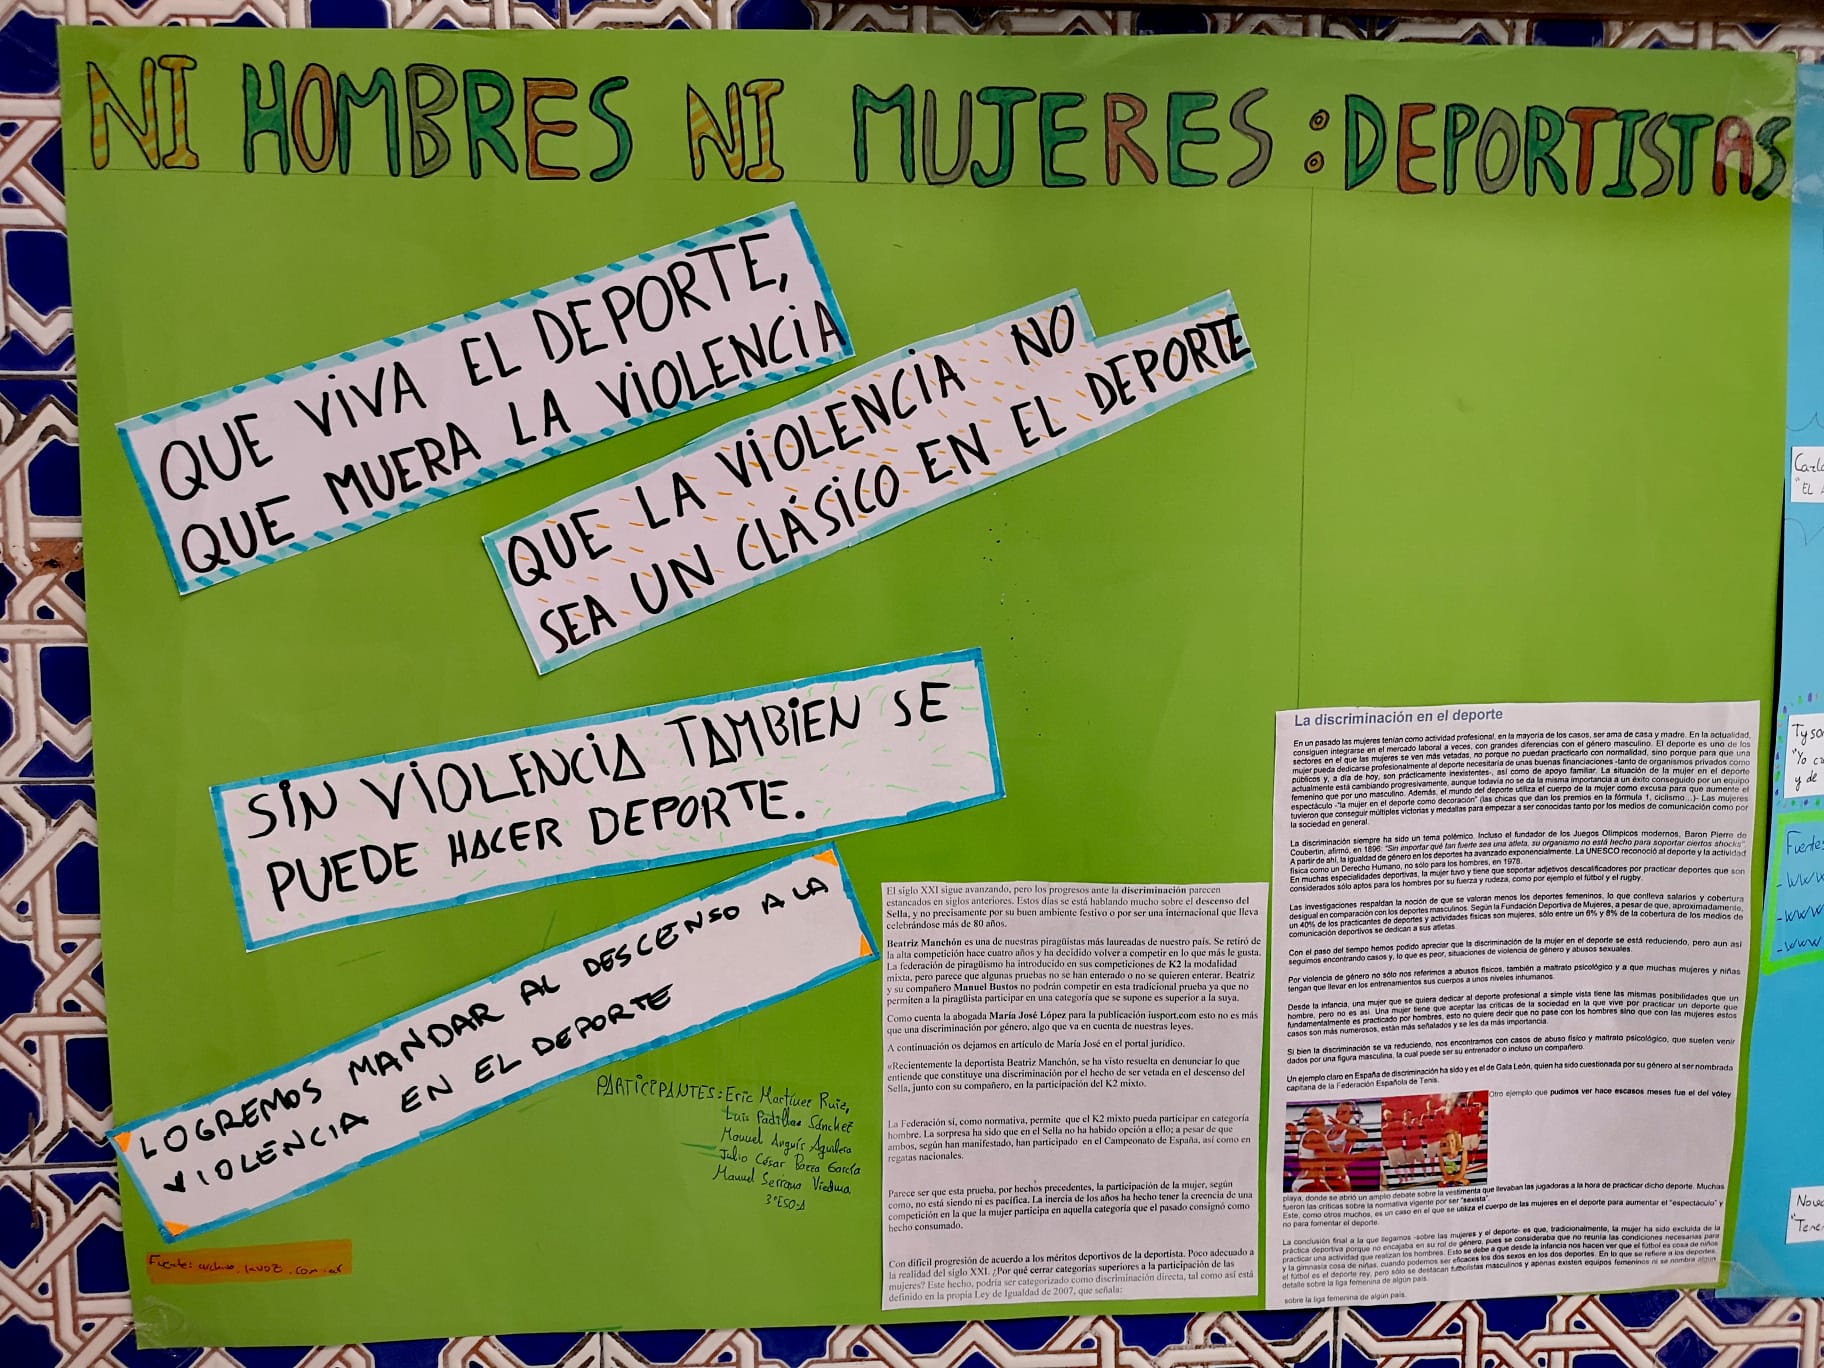 NI HOMBRES NI MUJERES : DEPORTISTAS
QUE VIVA EL DEPORTE,
QUE MUERA LA VIOLENCIA
QUE LA VIOLENCIA NO
SEA UN CLÁSICO EN EL DEPORTE
SIN VIOLENCIA TAMBIEN SE
PUEDE HACER DEPORTE.
LOGREMOS MANDAR AL DESCENSO A LA
VIOLENCIA EN EL DEPORTE
PARTICIPANTES: Eric Martínez Ruiz,
Luis Padilla Sánchez
Manuel Anguís Aguilera
Julio César García
Manuel Serrano Viedma
3ºESO-A
Fuente: archivo.lavoz.com.ar
El siglo XXI sigue avanzando, pero los progresos ante la discriminación parecen
estancados en siglos anteriores. Estos días se está hablando mucho sobre el descenso del
Sella, y no precisamente por su buen ambiente festivo o por ser una internacional que lleva
celebrándose más de 80 años.
Beatriz Manchón es una de nuestras piragüistas más laureadas de nuestro país. Se retiró de
la alta competición hace cuatro años y ha decidido volver a competir en lo que más le gusta.
La federación de piragüismo ha introducido en sus competiciones de K2 la modalidad
mixta, pero parece que algunas pruebas no se han enterado o no se quieren enterar. Beatriz
y su compañero Manuel Bustos no podrán competir en esta tradicional prueba ya que no
permiten a la piragüista participar en una categoría que se supone es superior a la suya.
Como cuenta la abogada María José López para la publicación iusport.com esto no es más
que una discriminación por género, algo que va en cuenta de nuestras leyes.
A continuación os dejamos en artículo de María José en el portal jurídico.
«Recientemente la deportista Beatriz Manchón, se ha visto resuelta en denunciar lo que
entiende que constituye una discriminación por el hecho de ser vetada en el descenso del
Sella, junto con su compañero, en la participación del K2 mixto.
La Federación si, como normativa, permite que el K2 mixto pueda participar en categoría
hombre. La sorpresa ha sido que en el Sella no ha habido opción a ello; a pesar de que
ambos, según han manifestado, han participado en el Campeonato de España, así como en
regatas nacionales.
Parece ser que esta prueba, por hechos precedentes, la participación de la mujer, según
como, no está siendo ni es pacífica. La inercia de los años ha hecho tener la creencia de una
competición en la que la mujer participa en aquella categoría que el pasado consignó como
hecho consumado.
Con difícil progresión de acuerdo a los méritos deportivos de la deportista. Poco adecuado a
la realidad del siglo XXI. ¿Por qué cerrar categorías superiores a la participación de las
mujeres? Este hecho, podría ser categorizado como discriminación directa, tal como así está
definido en la propia Ley de Igualdad de 2007, que señala:
La discriminación en el deporte
En un pasado las mujeres tenían como actividad profesional, en la mayoría de los casos, ser ama de casa y madre. En la actualidad,
consiguen integrarse en el mercado laboral a veces, con grandes diferencias con el género masculino. El deporte es uno de los
sectores en el que las mujeres se ven más vetadas, no porque no puedan practicarlo con normalidad, sino porque para que una
mujer pueda dedicarse profesionalmente al deporte necesitaría de unas buenas financiaciones -tanto de organismos privados como
públicos y, a día de hoy, son prácticamente inexistentes-, así como de apoyo familiar. La situación de la mujer en el deporte
actualmente está cambiando progresivamente, aunque todavía no se da la misma importancia a un éxito conseguido por un equipo
femenino que por uno masculino. Además, el mundo del deporte utiliza el cuerpo de la mujer como excusa para que aumente el
espectáculo -"la mujer en el deporte como decoración" (las chicas que dan los premios en la fórmula 1, ciclismo...)- Las mujeres
tuvieron que conseguir múltiples victorias y medallas para empezar a ser conocidas tanto por los medios de comunicación como por
la sociedad en general.
La discriminación siempre ha sido un tema polémico. Incluso el fundador de los Juegos Olímpicos modernos, Baron Pierre de
Coubertin, afirmó, en 1896: "Sin importar qué tan fuerte sea una atleta, su organismo no está hecho para soportar ciertos shocks".
A partir de ahí, la igualdad de género en los deportes ha avanzado exponencialmente. La UNESCO reconoció al deporte y la actividad
física como un Derecho Humano, no sólo para los hombres, en 1978.
En muchas especialidades deportivas, la mujer tuvo y tiene que soportar adjetivos descalificadores por practicar deportes que son
considerados sólo aptos para los hombres por su fuerza y rudeza, como por ejemplo el fútbol y el rugby.
Las investigaciones respaldan la noción de que se valoran menos los deportes femeninos, lo que conlleva salarios y cobertura
desigual en comparación con los deportes masculinos. Según la Fundación Deportiva de Mujeres, a pesar de que, aproximadamente,
un 40% de los practicantes de deportes y actividades físicas son mujeres, sólo entre un 6% y 8% de la cobertura de los medios de
comunicación deportivos se dedican a sus atletas.
Con el paso del tiempo hemos podido apreciar que la discriminación de la mujer en el deporte se está reduciendo, pero aun así
seguimos encontrando casos y, lo que es peor, situaciones de violencia de género y abusos sexuales.
Por violencia de género no sólo nos referimos a abusos físicos, también a maltrato psicológico y a que muchas mujeres y niñas
tengan que llevar en los entrenamientos sus cuerpos a unos niveles inhumanos.
Desde la infancia, una mujer que se quiera dedicar al deporte profesional a simple vista tiene las mismas posibilidades que un
hombre, pero no es así. Una mujer tiene que aceptar las críticas de la sociedad en la que vive por practicar un deporte que
fundamentalmente es practicado por hombres, esto no quiere decir que no pase con los hombres sino que con las mujeres estos
casos son más numerosos, están más señalados y se les da más importancia.
Si bien la discriminación se va reduciendo, nos encontramos con casos de abuso físico y maltrato psicológico, que suelen venir
dados por una figura masculina, la cual puede ser su entrenador o incluso un compañero.
Un ejemplo claro en España de discriminación ha sido y es el de Gala León, quien ha sido cuestionada por su género al ser nombrada
capitana de la Federación Española de Tenis.
Otro ejemplo que pudimos ver hace escasos meses fue el del vóley
playa, donde se abrió un amplio debate sobre la vestimenta que llevaban las jugadoras a la hora de practicar dicho deporte. Muchas
fueron las críticas sobre la normativa vigente por ser "sexista".
Este, como otros muchos, es un caso en el que se utiliza el cuerpo de las mujeres en el deporte para aumentar el "espectáculo" y
no para fomentar el deporte.
La conclusión final a la que llegamos -sobre las mujeres y el deporte- es que, tradicionalmente, la mujer ha sido excluida de la
práctica deportiva porque no encajaba en su rol de género, pues se consideraba que no reunía las condiciones necesarias para
practicar una actividad que realizan los hombres. Esto se debe a que desde la infancia nos hacen ver que el fútbol es cosa de niños
y la gimnasia cosa de niñas, cuando podemos ser eficaces los dos sexos en los dos deportes. En lo que se refiere a los deportes,
el fútbol es el deporte rey, pero sólo se destacan futbolistas masculinos y apenas existen equipos femeninos ni se nombra algún
detalle sobre la liga femenina de algún país.
sobre la liga femenina de algún país.
Carlo
"EL
Tyson
"Yo c
y de
Fuente
-www
-www
-www
Nova
"Tene